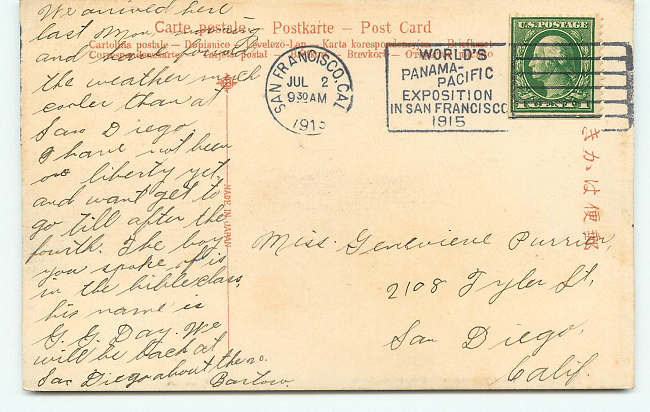 We arrived here
last Mon. morning
and
the weather much
cooler than at
San Diego.
I have not been
on liberty yet
and want get to
go till after the
fourth. The boy
you spoke of is
in the bible class.
his name is
G. G. Day. We
will be back at
San Diego about the 20.
Bartow.
Carte postale – Postkarte – Post Card
Cartolina postale – Dopisnice – Levelezo-Lap – Karta korespondencyjna – Briefkaart
Correspondenzkarte – Tarjeta postal – Brevkort –
MADE IN JAPAN
SAN FRANCISCO, CAL.
JUL 2
9 30 AM
1915
WORLD'S
PANAMA-
PACIFIC
EXPOSITION
IN SAN FRANCISCO
1915
U.S. POSTAGE
きかは便郵
Miss. Genevieve Purrier,
2108 Tyler St,
San Diego,
Calif.